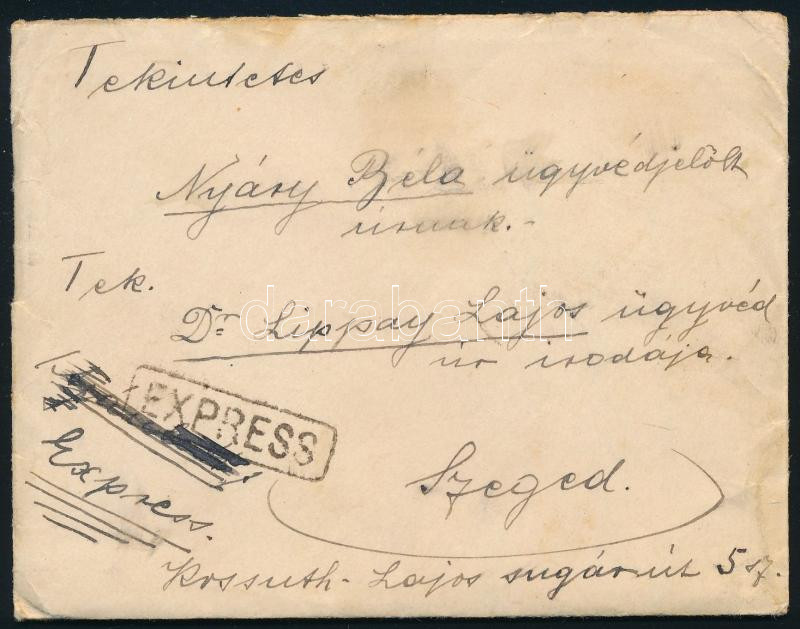 Tekintetes
Nyáry Béla ügyvédjelölt
úrnak.-
Tek.
Dr Lippay Lajos ügyvéd
úr irodája.
darabanth
EXPRESS
Express.
Szeged.
Kossuth-Lajos sugárút 5 sz.